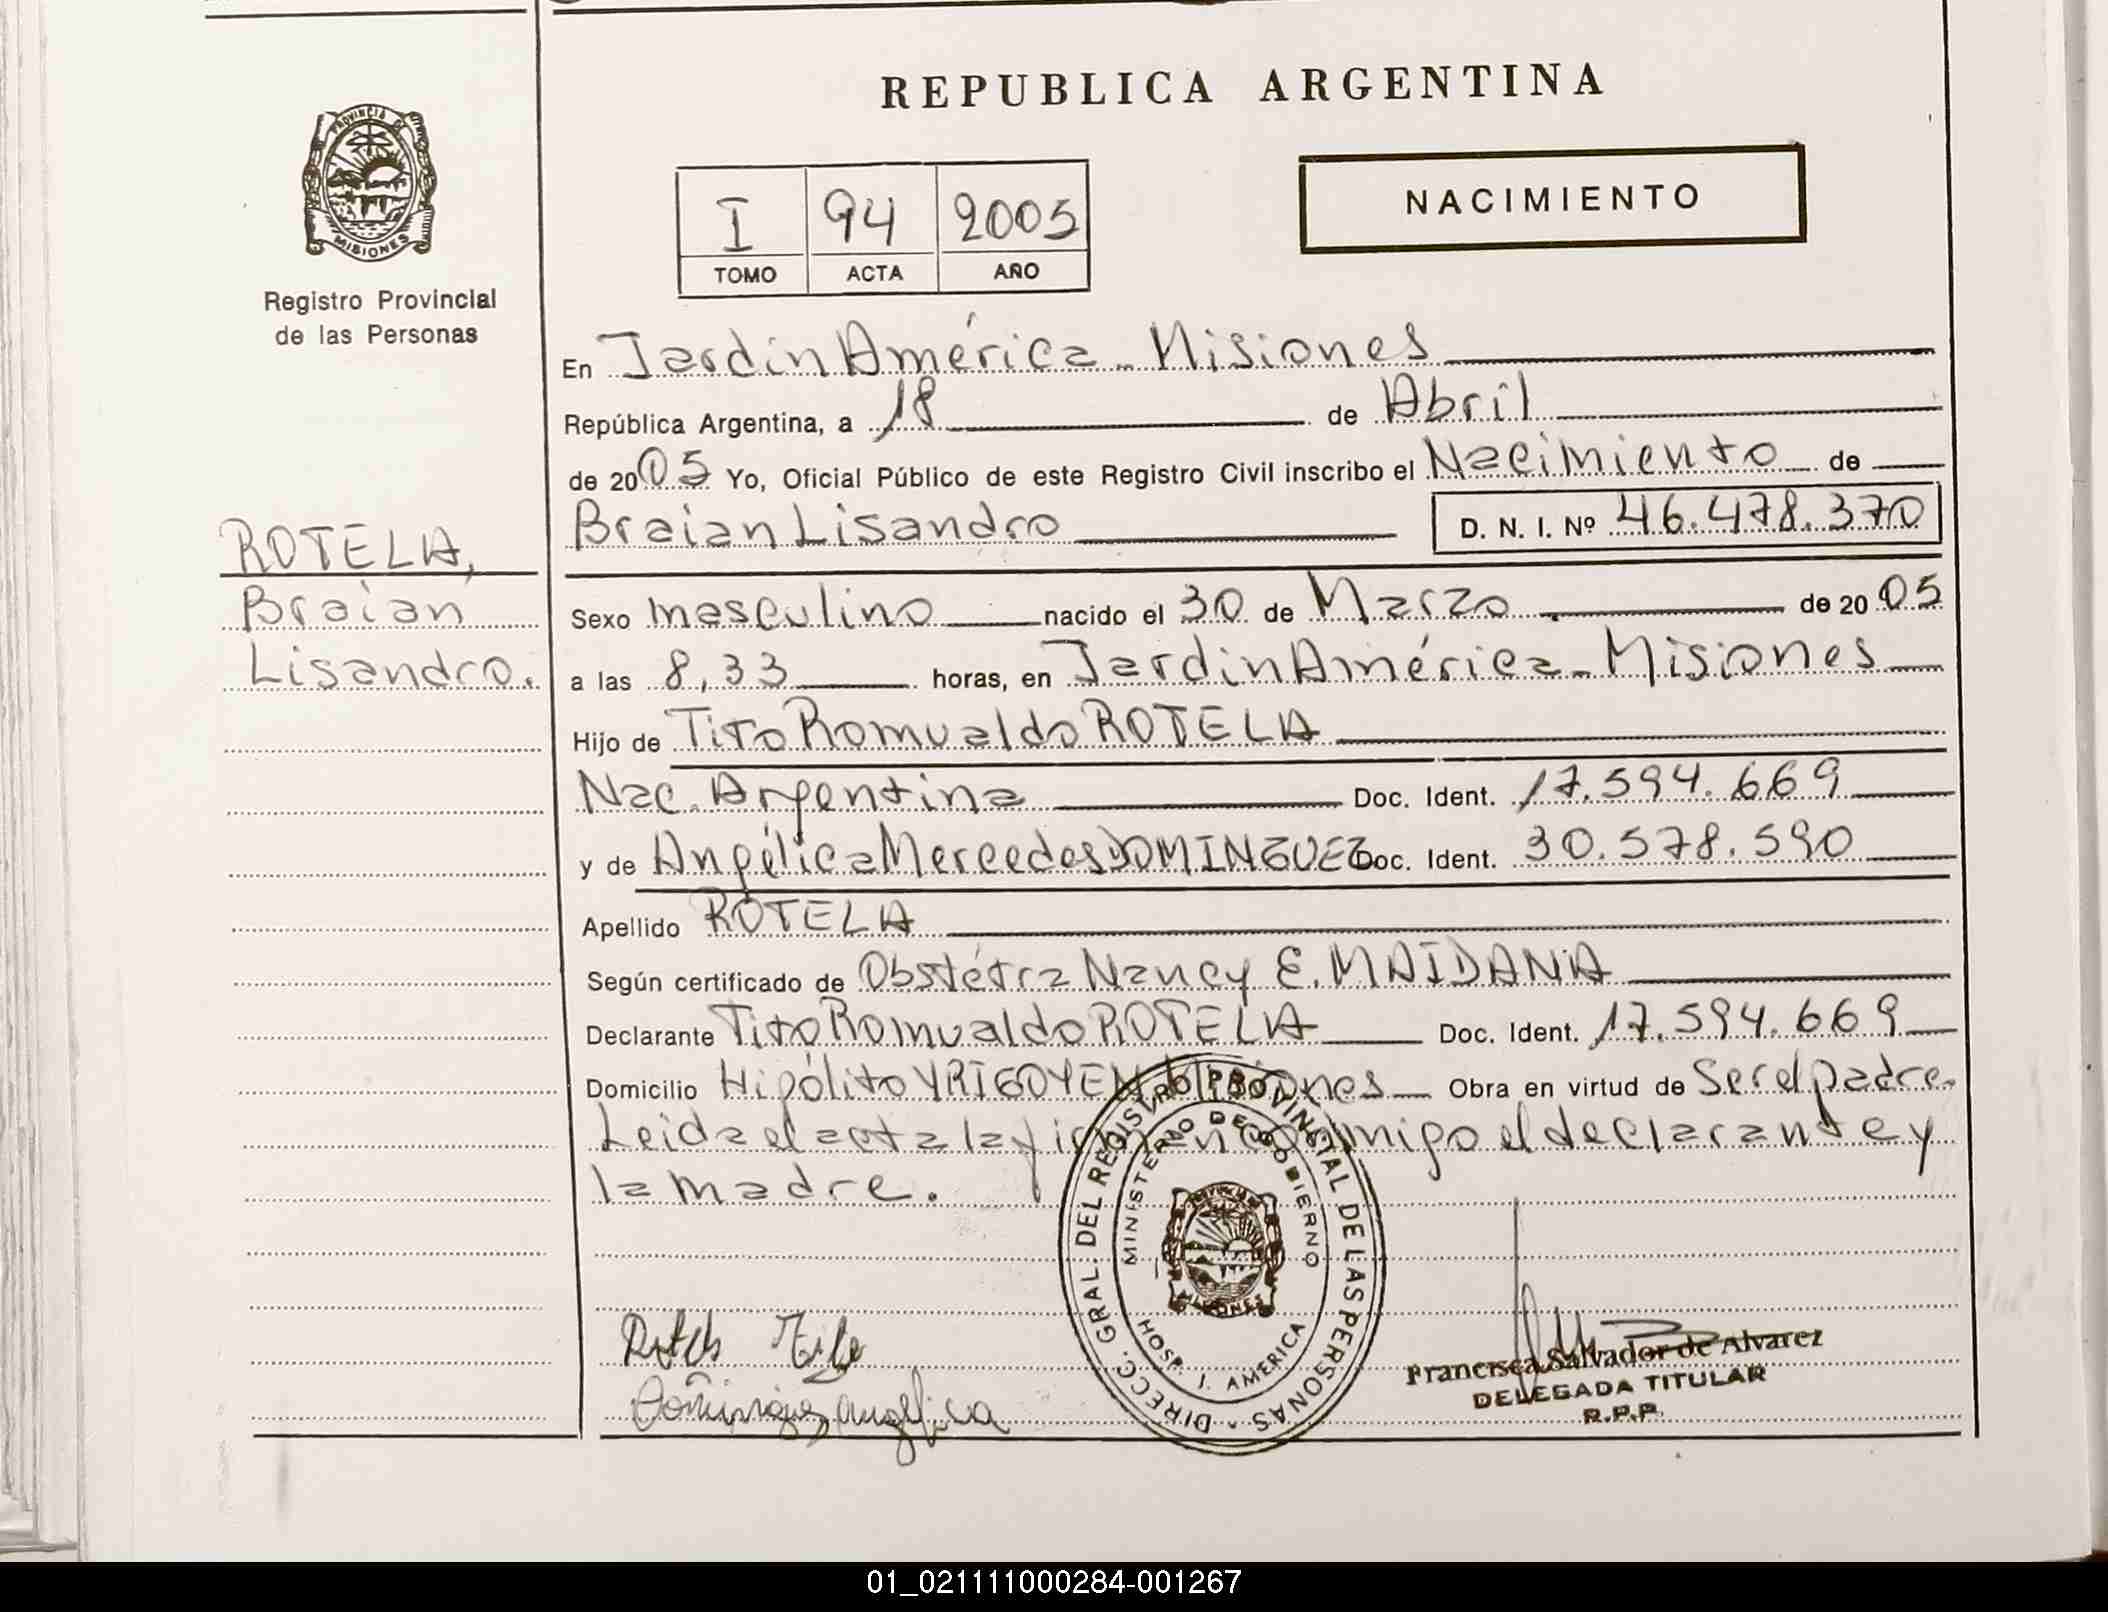 REPUBLICA ARGENTINA
PROVINCIA DE
MISIONES
Registro Provincial
de las Personas
NACIMIENTO
I 94 2005
TOMO ACTA AÑO
En Jardín América - Misiones
República Argentina, a 18 de Abril
de 2005 Yo, Oficial Público de este Registro Civil inscribo el Nacimiento de
Braian Lisandro D. N. I. Nº 46.478.370
ROTELA,
Braian
Lisandro.
Sexo masculino nacido el 30 de Marzo de 2005
a las 8,33 horas, en Jardín América - Misiones
Hijo de Tito Romualdo ROTELA
Nac. Argentina Doc. Ident. 17.594.669
y de Angélica Mercedes DOMINGUEZ Doc. Ident. 30.578.590
Apellido ROTELA
Según certificado de Obstétra Nancy E. MAIDANA
Declarante Tito Romualdo ROTELA Doc. Ident. 17.594.669
Domicilio Hipólito YRIGOYEN Misiones Obra en virtud de Ser el padre.
Leida el acta la firman conmigo el declarante y
la madre.
DIRECC. GRAL. DEL REGISTRO PROVINCIAL DE LAS PERSONAS
MINISTERIO DE GOBIERNO
MISIONES
HOSP. J. AMERICA
Rotela Tito
Dominguez angelica
Francisca Salvador de Alvarez
DELEGADA TITULAR
R.P.P.
01_021111000284-001267